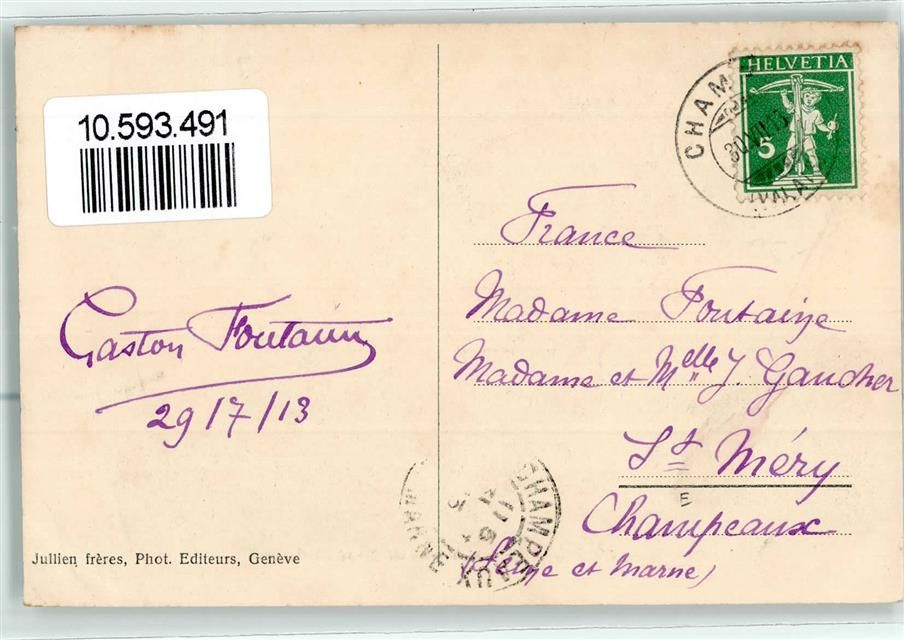 10.593.491
HELVETIA
5
CHAMP
30.VII.13
(VALAIS)
France
Madame Fontaine
Madame et Melle J. Gaucher
St Méry
Champeaux
(Seine et Marne)
Gaston Fontaine
29/7/13
E
CHAMPEAUX
MARNE
Jullien frères, Phot. Editeurs, Genève